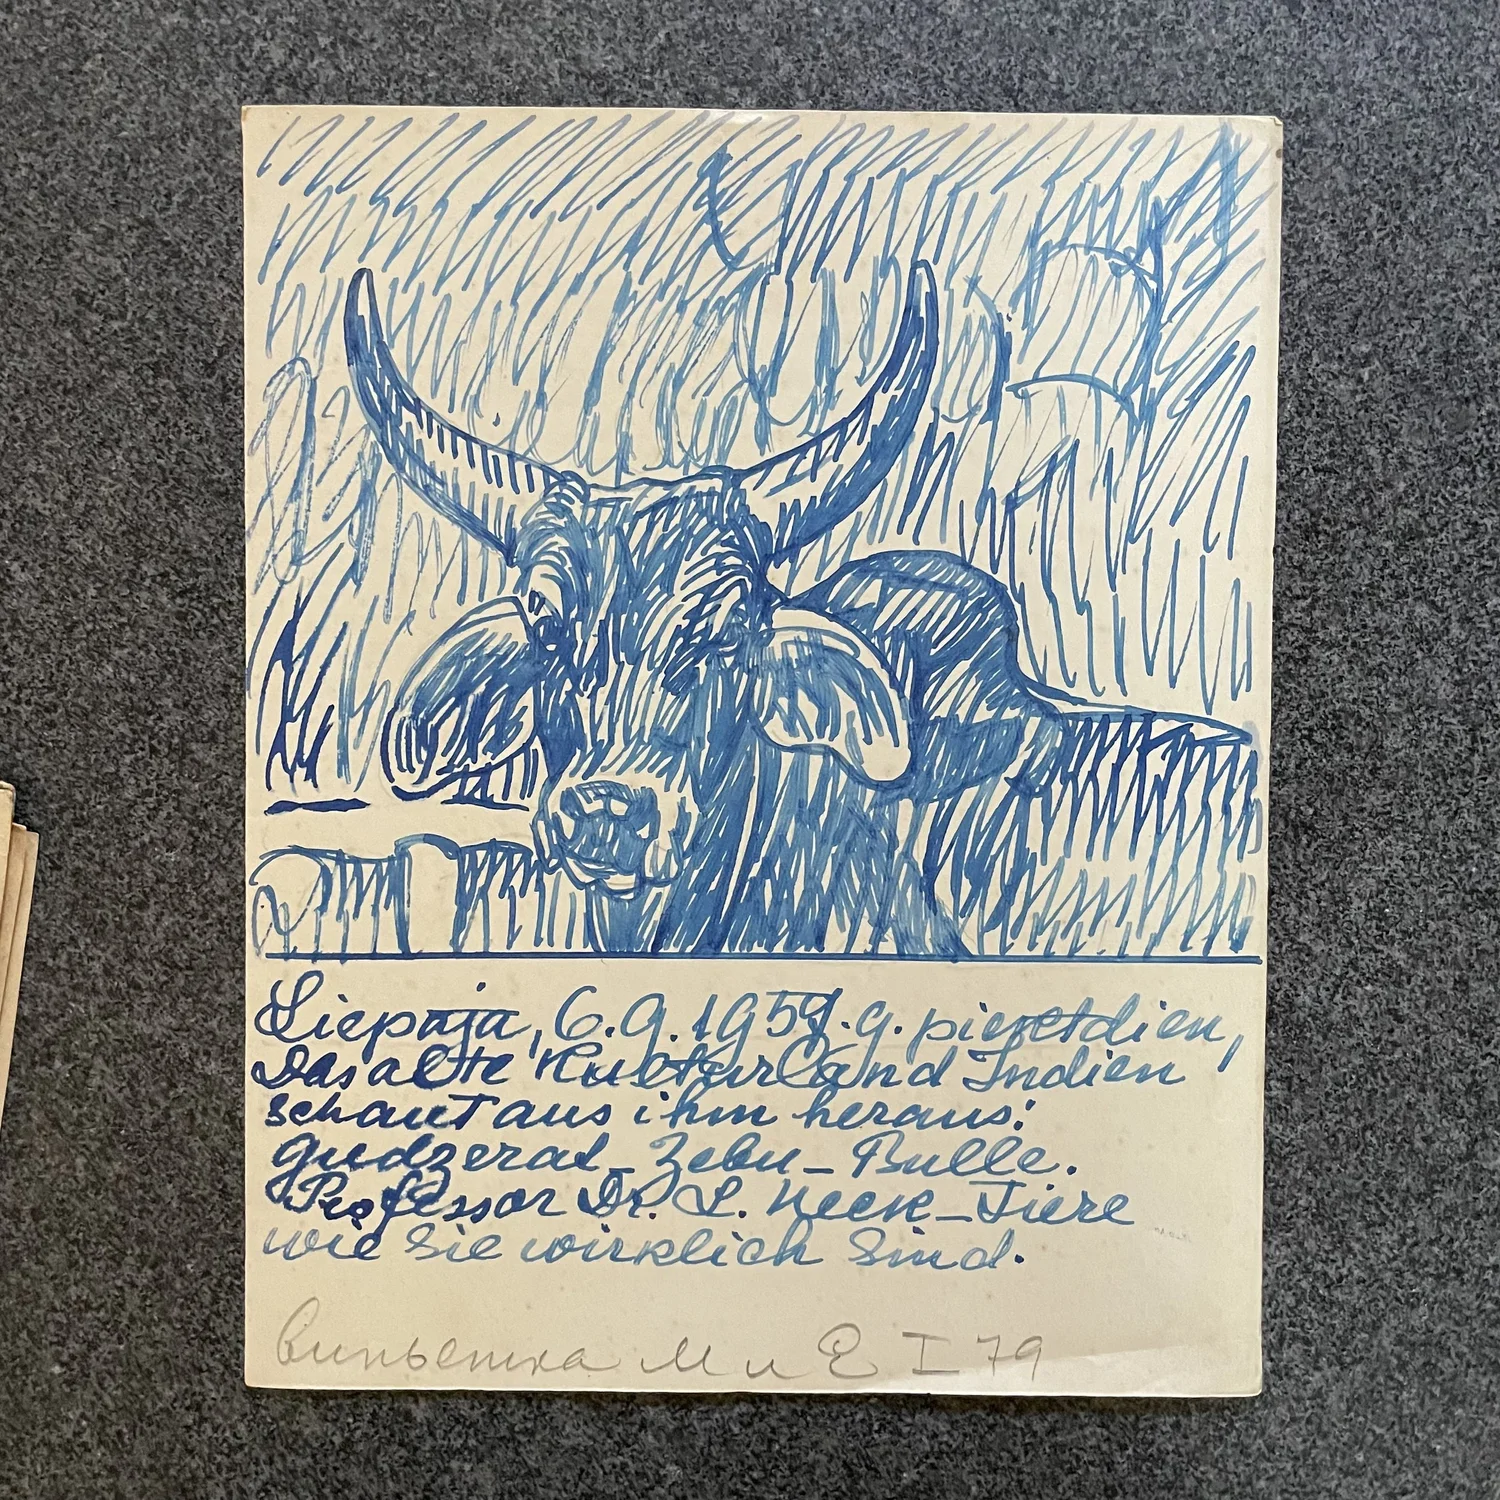 Liepaja, 6.9.1959.g. piektdien,
Das alte Kulturland Indien
schaut aus ihm heraus:
Gudzerat-Zebu-Bulle.
Professor Dr. L. Heck-Tiere
wie Sie wirklich Sind.
виньетка М и Е I 79